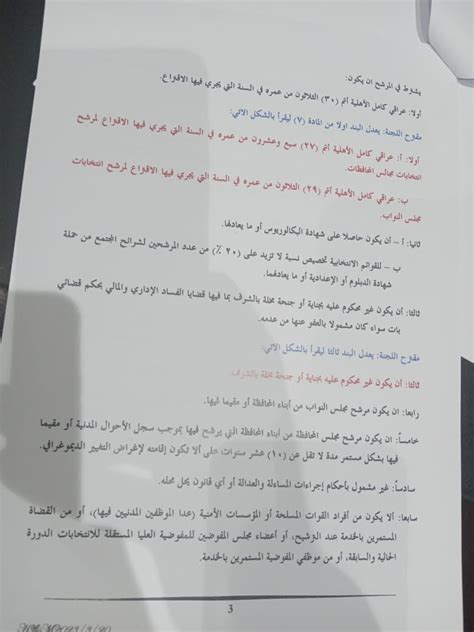 يشترط في المرشح ان يكون:
أولا: عراقي كامل الأهلية أتم (٣٠) الثلاثون من عمره في السنة التي يجري فيها الاقتراع.
مقترح اللجنة: يعدل البند اولا من المادة (٧) ليقرأ بالشكل الاتي:
أولا: أ: عراقي كامل الأهلية أتم (٢٧) سبع وعشرون من عمره في السنة التي يجري فيها الاقتراع لمرشح
انتخابات مجالس المحافظات.
ب: عراقي كامل الأهلية أتم (٢٩) الثلاثون من عمره في السنة التي يجري فيها الاقتراع لمرشح انتخابات
مجلس النواب.
ثانيا: أ – أن يكون حاصلا على شهادة البكالوريوس أو ما يعادلها.
ب – للقوائم الانتخابية تخصيص نسبة لا تزيد على (٢٠ ٪) من عدد المرشحين لشرائح المجتمع من حملة
شهادة الدبلوم أو الإعدادية أو ما يعادلهما.
ثالثا: أن يكون غير محكوم عليه بجناية أو جنحة مخلة بالشرف بما فيها قضايا الفساد الإداري والمالي بحكم قضائي
بات سواء كان مشمولا بالعفو عنها من عدمه.
مقترح اللجنة: يعدل البند ثالثا ليقرأ بالشكل الاتي:
ثالثا: أن يكون غير محكوم عليه بجناية أو جنحة مخلة بالشرف.
رابعا: أن يكون مرشح مجلس النواب من أبناء المحافظة أو مقيما فيها.
خامساً: أن يكون مرشح مجلس المحافظة من أبناء المحافظة التي يرشح فيها بموجب سجل الأحوال المدنية أو مقيما
فيها بشكل مستمر مدة لا تقل عن (١٠) عشر سنوات على ألا تكون إقامته لإغراض التغيير الديموغرافي.
سادساً: غير مشمول بأحكام إجراءات المساءلة والعدالة أو أي قانون يحل محله.
سابعا: ألا يكون من أفراد القوات المسلحة أو المؤسسات الأمنية (عدا الموظفين المدنيين فيها)، أو من القضاة
المستمرين بالخدمة عند الترشيح، أو أعضاء مجلس المفوضين للمفوضية العليا المستقلة للانتخابات الدورة
الحالية والسابقة، أو من موظفي المفوضية المستمرين بالخدمة.
3